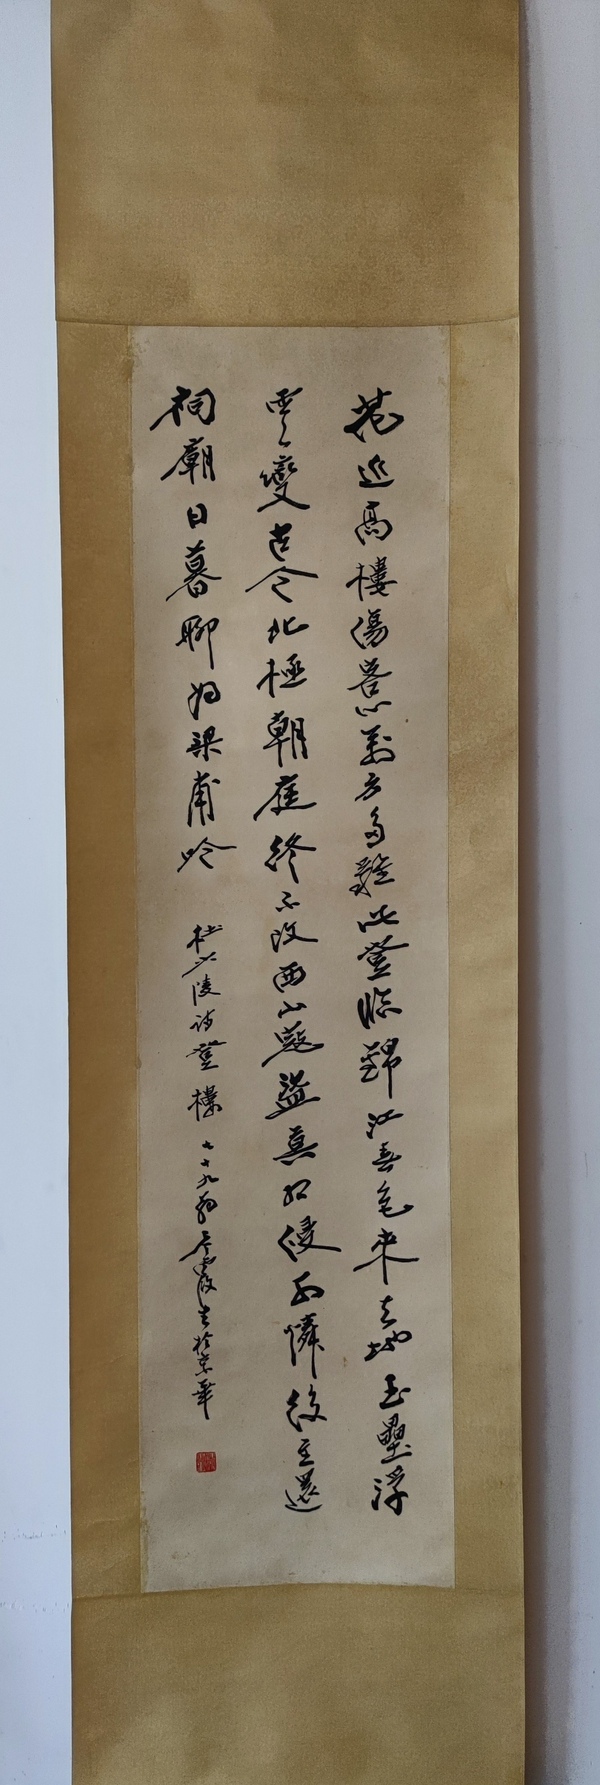 花近高樓傷客心萬方多難此登臨錦江春色來天地玉壘浮
雲變古今北極朝庭終不改西山寇盜莫相侵可憐後主還
祠廟日暮聊為梁甫吟
杜少陵詩登樓 七十九翁 霞書於京華